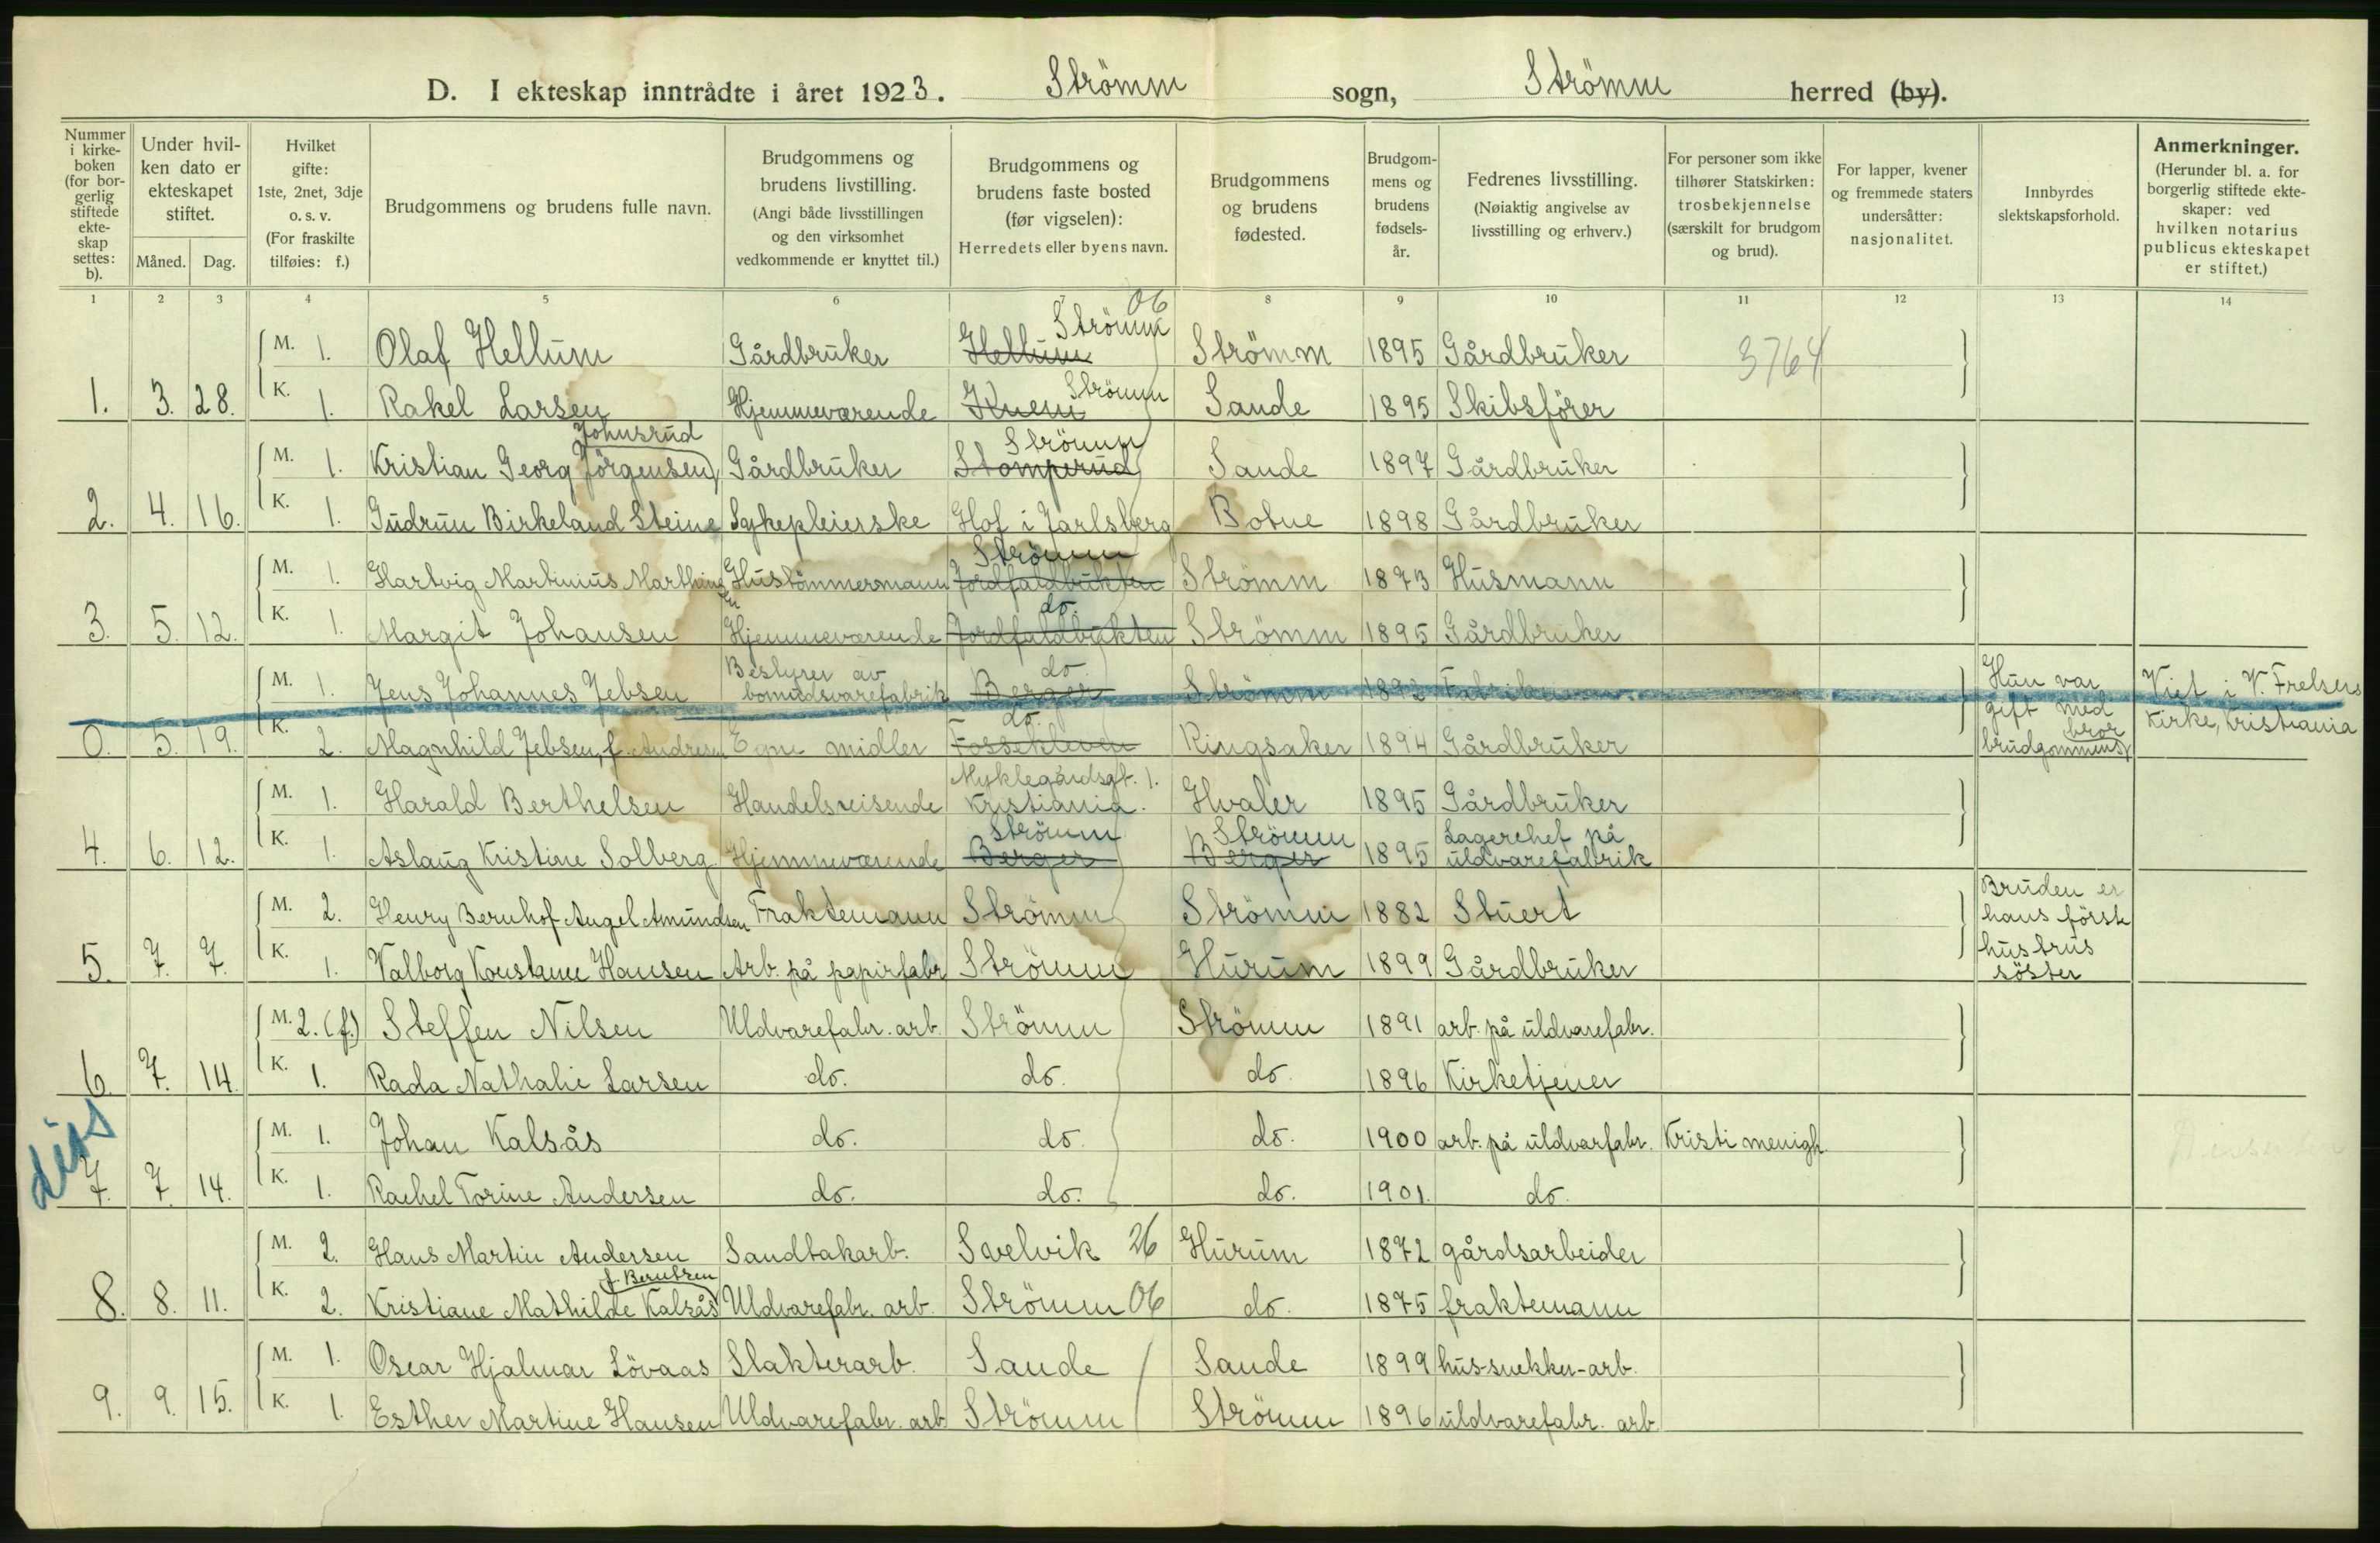 D. I ekteskap inntrådte i året 1923. Strömm sogn, Strömm herred (by).
Nummer i kirkeboken (for borgerlig stiftede ekteskap settes: b).
Under hvilken dato er ekteskapet stiftet.
Måned. Dag.
Hvilket gifte: 1ste, 2net, 3dje o. s. v. (For fraskilte tilføies: f.)
Brudgommens og brudens fulle navn.
Brudgommens og brudens livstilling. (Angi både livsstillingen og den virksomhet vedkommende er knyttet til.)
Brudgommens og brudens faste bosted (før vigselen): Herredets eller byens navn.
Brudgommens og brudens fødested.
Brudgommens og brudens fødselsår.
Fedrenes livsstilling. (Nøiaktig angivelse av livsstilling og erhverv.)
For personer som ikke tilhører Statskirken: trosbekjennelse (særskilt for brudgom og brud).
For lapper, kvener og fremmede staters undersåtter: nasjonalitet.
Innbyrdes slektskapsforhold.
Anmerkninger. (Herunder bl. a. for borgerlig stiftede ekteskaper: ved hvilken notarius publicus ekteskapet er stiftet.)
1 2 3 4 5 6 7 8 9 10 11 12 13 14
06
M. 1. Olaf Hellum Gårdbruker Hellum Strömm Strömm 1895 Gårdbruker 3764
1. 3. 28. K. 1. Rakel Larsen Hjemmeværende Knem Strömm Sande 1895 Skibsförer
M. 1. Kristian Georg Jörgensen Johnsrud Gårdbruker Stomperud Strömm Sande 1897 Gårdbruker
2. 4. 16. K. 1. Gudrun Birkeland Steine Sykepleierske Hof i Jarlsberg Botne 1898 Gårdbruker
M. 1. Hartvig Martinius Marthinsen Hustömmermann Jordfaldbukten Strömm Strömm 1873 Husmann
3. 5. 12. K. 1. Margit Johansen Hjemmeværende Jordfaldbukten do. Strömm 1895 Gårdbruker
M. 1. Jens Johannes Jebsen Bestyrer av bomuldsvarefabrik Berger do. Strömm 1892 Hun var gift med brudgommens bror Viet i V. Frelsers Kirke, Kristiania
0. 5. 19. K. 2. Magnhild Jebsen, f. Andresen Egne midler Fossekleven do. Ringsaker 1894 Gårdbruker
M. 1. Harald Berthelsen Handelsreisende Myklegårdsgt. 1. Kristiania. Hvaler 1895 Gårdbruker
4. 6. 12. K. 1. Aslaug Kristine Solberg Hjemmeværende Berger Strömm Berger Strömm 1895 Lagerchef på uldvarefabrik
M. 2. Henry Bernhof Angel Amundsen Fraktemann Strömm Strömm 1882 Stuert Bruden er hans förste hustrus söster
5. 7. 7. K. 1. Valborg Konstanse Hansen Arb. på papirfabr Strömm Hurum 1899 Gårdbruker
M. 2. (f.) Steffen Nilsen Uldvarefabr. arb. Strömm Strömm 1891 arb. på uldvarefabr.
6. 7. 14. K. 1. Rada Nathalie Larsen do. do. do. 1896 Kirketjener
diss
M. 1. Johan Kalsås do. do. do. 1900 arb. på uldvarfabr. Kristi menigh.
7. 7. 14. K. 1. Rachel Torine Andersen do. do. do. 1901. do.
M. 2. Hans Martin Andersen Sandtakarb. Svelvik 26 Hurum 1872 gårdsarbeider
8. 8. 11. K. 2. Kristiane Mathilde Kalsås f. Berntsen Uldvarefabr. arb. Strömm 06 do. 1875 fraktemann
M. 1. Oscar Hjalmar Lövaas Slakterarb. Sande Sande 1899 hus-snekker-arb.
9. 9. 15. K. 1. Esther Martine Hansen Uldvarefabr. arb Strömm Strömm 1896 uldvarefabr. arb.